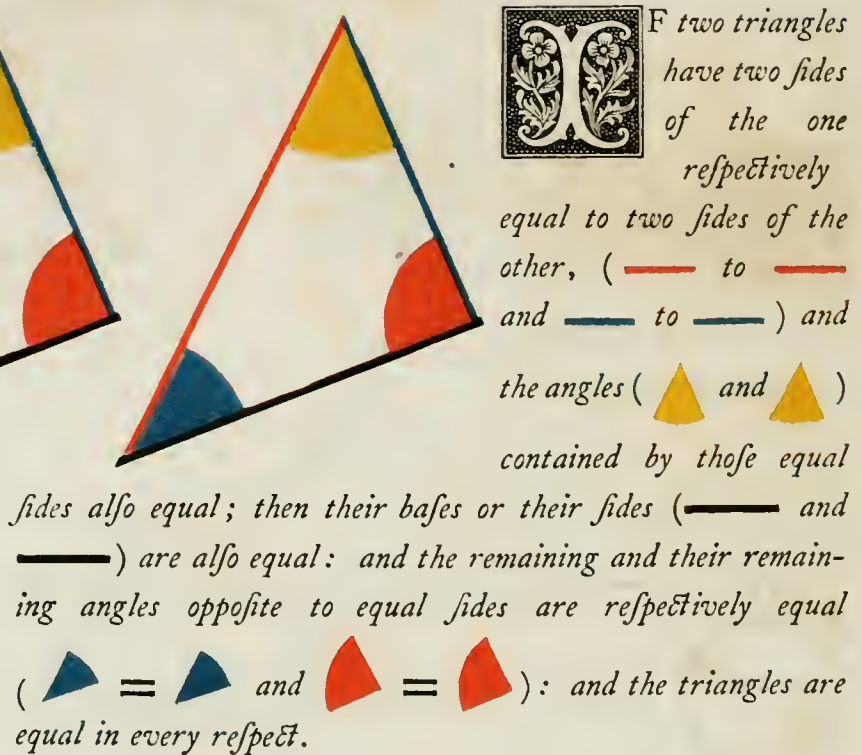 IF two triangles
have two ſides
of the one
reſpectively
equal to two ſides of the
other, ( to
and to ) and
the angles ( and )
contained by thoſe equal
ſides alſo equal ; then their baſes or their ſides ( and
) are alſo equal : and the remaining and their remain-
ing angles oppoſite to equal ſides are reſpectively equal
( = and = ) : and the triangles are
equal in every reſpect.